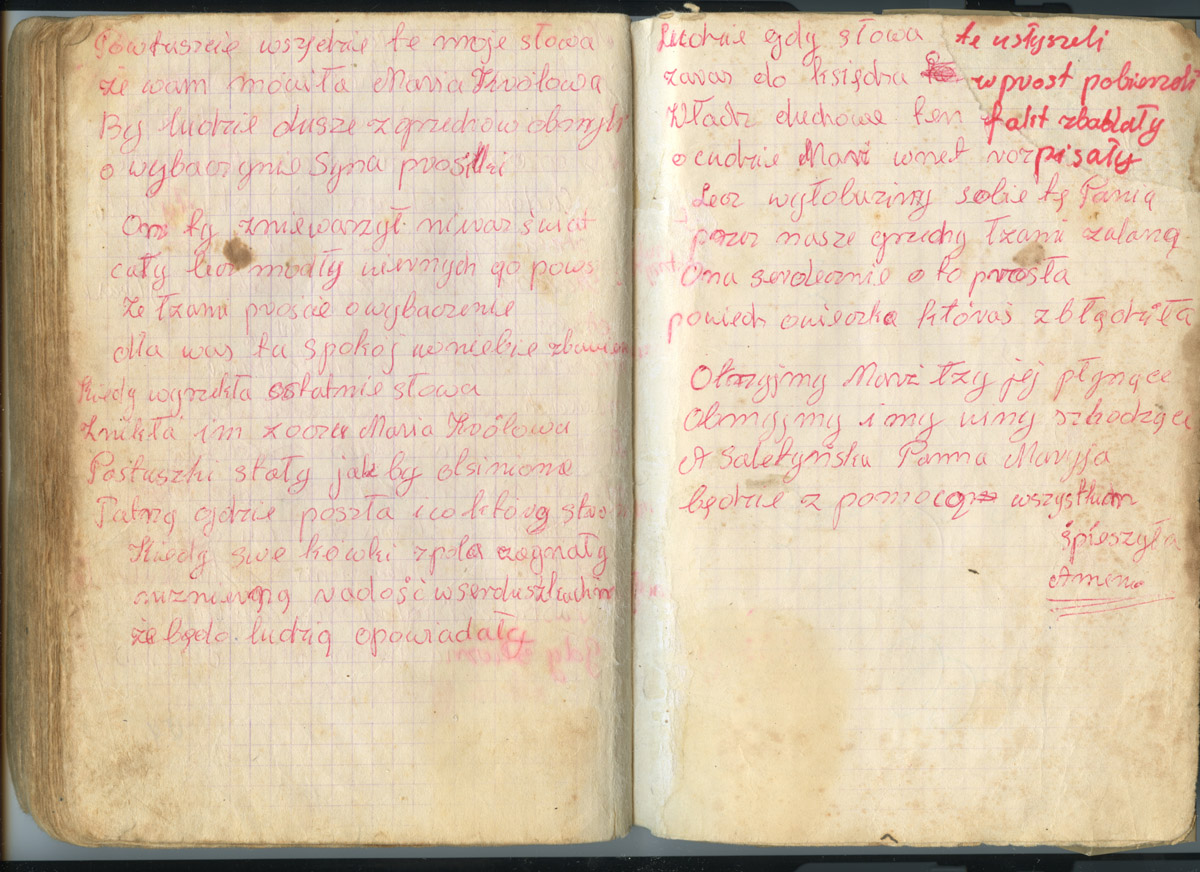 Powtuszcie wszędzie te moje słowa
że wam mówiła Maria Królowa
By ludzie dusze z grzechów obmyli
o wybaczynie Syna prosili
On ty zniewarzył świat
cały lecz modły wiernych go pows
że łzami proscie o wybaczenie
dla was tu spokój w niebie zbawien
Kiedy wyrzekła ostatnie słowa
Znikła im z oczu Maria Królowa
Pastuszki stały jak by olsinione
Patrzą gdzie poszła i w którą stro
Kiedy swe kówki z pola zagnały
radość w serduszkach
że będo ludzią opowiadały
Ludzie gdy słowa te usłyszeli
zaraz do księdza w prost pobierzeli
Władz duchowe ten fakt zbadały
o cudzie Mari wnet rozpisały
Lecz wyłobuzimy sobie tę Panią
przez nasze grzechy łzami zalaną
Ona serdecznie o to prosła
powiedz owieczka któraś zbłędziła
Otrzyjmy Mari łzy jej płynące
Obmyjmy i my winy szkodzące
A Saletyńska Panna Maryja
będzie z pomocą wszystkim
śpieszyła
Amen